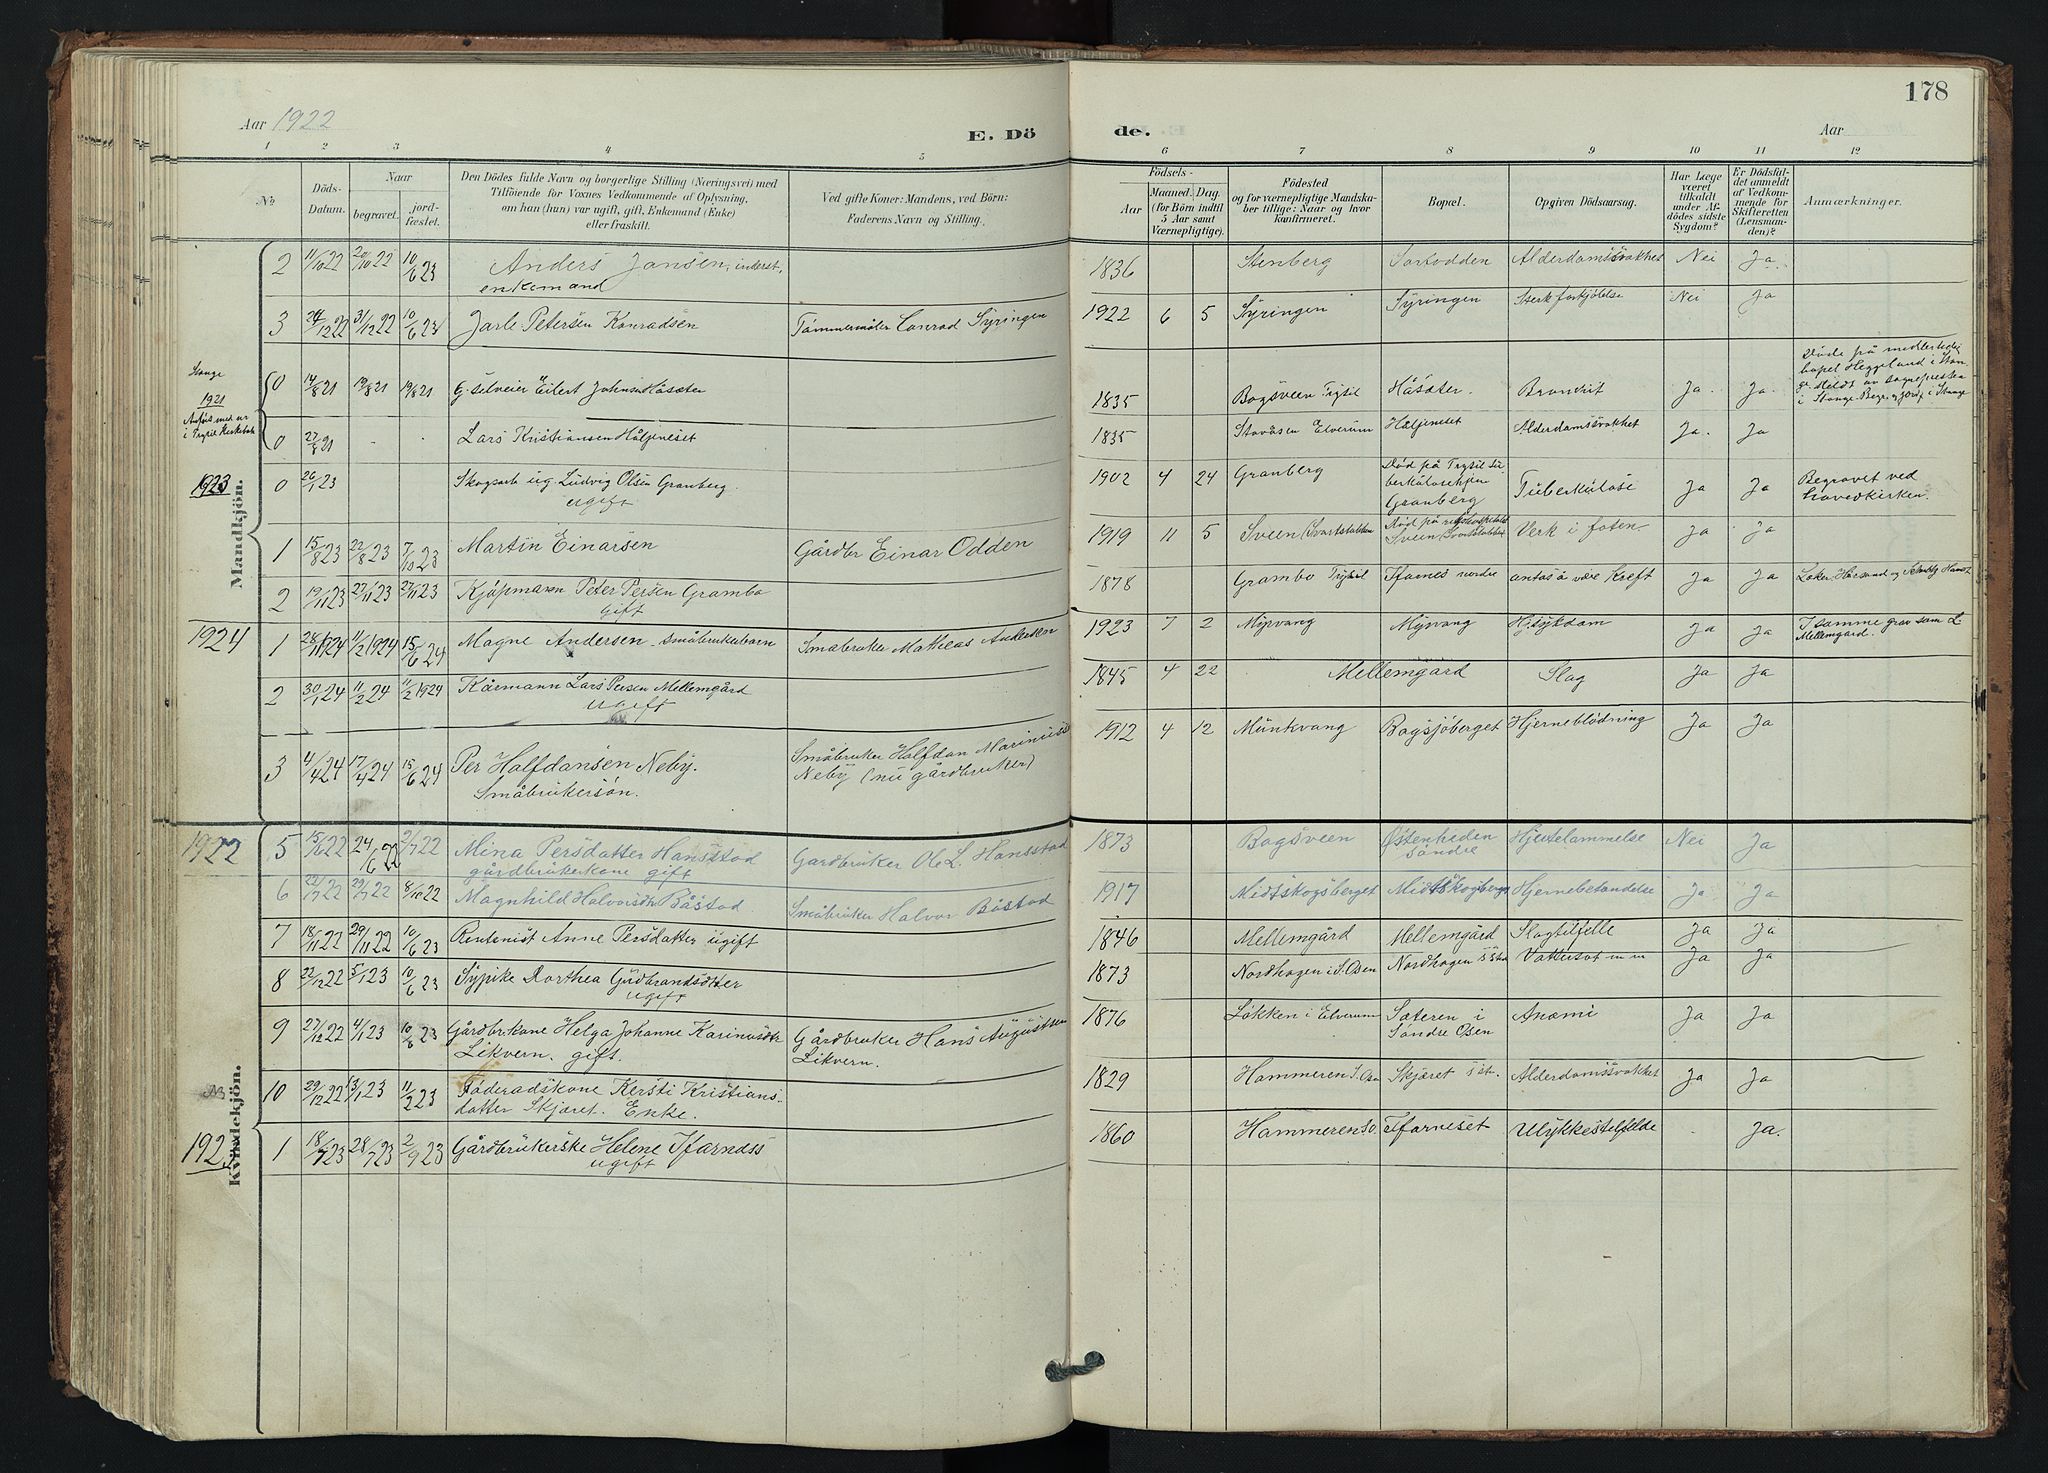 178
Aar 1922
E. Dö
de.
Aar
1 2 3 4 5
6 7 8 9 10 11 12
No.
Döds-
Datum.
Naar
begravet.
jord-
fæstet.
Den Dödes fulde Navn og borgerlige Stilling (Næringsvei) med
Tilföiende for Voxnes Vedkommende af Oplysning,
om han (hun) var ugift, gift, Enkemand (Enke)
eller fraskilt.
Ved gifte Koner: Mandens, ved Börn:
Faderens Navn og Stilling.
Födsels-
Aar
Maaned. Dag.
(for Börn indtil
5 Aar samt
Værnepligtige).
Födested
og for værnepligtige Mandska-
ber tillige: Naar og hvor
konfirmeret.
Bopæl.
Opgiven Dödsaarsag.
Har Læge
været
tilkaldt
under Af-
dödes sidste
Sygdom?
Er Dödsfal-
det anmeldt
af Vedkom-
mende for
Skifteretten
(Lensman-
den)?
Anmærkninger.
Mandkjön.
2 11/10 22 20/10 22 10/6 23 Anders Jansen, inderst, 1836 Stenberg Sortodden Alderdomssvakhet Nei Ja
enkemand
3 24/12 22 31/12 22 10/6 23 Jarle Petersen Konradsen Tømmermåler Conrad Syringen 1922 6 5 Syringen Syringen Sterk forkjølelse Nei Ja
Stange
1921
0 14/8 21 19/8 21 19/8 21 Eilert Johnsen Håsæter 1835 Bogsveen Trysil Håsæter Ja. Ja.
Døde på
i Stange
0 27/8 21 - - Lars Kristiansen Håljeneset 1835 Elverum Håljeneset Alderdomssvakhet Ja. Ja
1923
0 26/1 23 Skogsarb. ug. Ludvig Olsen Granberg. 1902 4 24 Granberg Død på Trysil Tu-
berkulosehjem
Granberg Tuberkulose Ja Ja Begravet ved
hovedkirken.
ugift
1 15/8 23 22/8 23 7/10 23 Martin Einarsen Gårdbr Einar Odden 1919 11 5 Sveen Verk i foten Ja Ja
2 19/11 23 27/11 23 27/11 23 Kjøpmann Peter Persen Grambo 1878 Grambo Trysil nordre kreft Ja Ja
gift
1924
1 28/1 1924 11/2 1924 15/6 24 Magne Andersen småbrukerbarn Småbruker Mathias Andersen 1923 7 2 Myrvang Myrvang Hj.sykdom Ja Ja I samme grav som L.
Mellemgård.
2 30/1 24 11/2 24 11/2 1924 Kårmann Lars Persen Mellemgård 1845 4 22 Mellemgård Slag Ja Ja
ugift
3 4/4 24 17/4 24 15/6 24 Per Halfdansen Neby. Småbruker Halfdan 1912 4 12 Munkvang Bogsjøberget Hjerneblødning Ja Ja
Småbrukersøn. Neby (nu gårdbruker)
Kvindekjön.
1922
5 15/6 22 24/6 22 2/7 22 Mina Persdatter Hansstad Gårdbruker Ole L. Hansstad 1873 Bogsveen Østenheden
søndre Hjertelammelse Nei Ja
gårdbrukerkone gift
6 22/7 22 29/7 22 8/10 22 Magnhild Halvorsdtr Båstad Småbruker Halvor Båstad 1917 Midtskogsberget Hjernebetændelse Ja Ja
7 18/11 22 29/11 22 10/6 23 Rentenist Anne Persdatter ugift 1846 Mellemgård Mellemgård Slagtilfelle Ja Ja
8 22/12 22 5/1 23 10/6 23 Sypike Dorthea Gudbrandsdtter 1873 Nordhagen i S. Osen Nordhagen Vattersot m m Ja Ja
ugift
9 27/12 22 4/1 23 10/6 23 Gårdbrkone Helga Johanne Karinusdtr Gårdbruker Hans Augustsen 1876 Løkken i Elverum Sæteren i
Søndre Osen Anæmi Ja Ja
Likvern. gift. Likvern.
10 29/12 22 13/1 23 11/2 23 Føderadskone Kersti Kristians- 1829 Hammeren S. Osen Skjæret Alderdomssvakhet Ja Ja
datter Skjæret. Enke.
1923
1 18/7 23 28/7 23 2/9 23 Gårdbrukerske Helene 1860 Hammeren S.O. Ulykkestilfelde Ja.
ugift